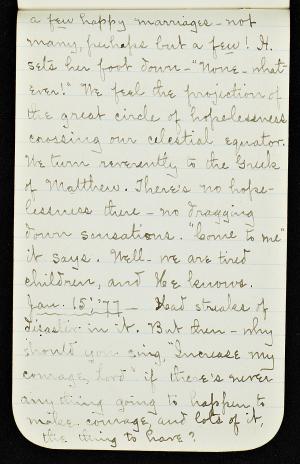 a few happy marriages - not
many, perhaps but a few! H.
sets her foot down - "None - what-
ever!" We feel the projection of
the great circle of hopelessness
crossing our celestial equator.
We turn reverently to the Greek
of Matthew. There's no hope-
lessness there - no dragging
down sensations. "Come to me"
it says. Well - we are tired
children, and He knows.
Jan. 15, '77 - Had streaks of
disaster in it. But then - why
should you sing, "Increase my
courage, Lord" if there's never
anything going to happen to
make courage, and lots of it,
the thing to have?